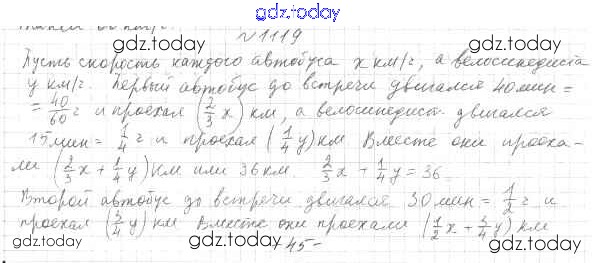 gdz.today
№1119
gdz.today gdz.today
Пусть скорость каждого автобуса x км/ч, а велосипедиста
y км/ч. Первый автобус до встречи двигался 40 мин =
= 40/60 ч и проехал (2/3 x) км, а велосипедист двигался
15 мин = 1/4 ч и проехал (1/4 y) км Вместе они проеха-
ли (2/3 x + 1/4 y) км или 36 км. 2/3 x + 1/4 y = 36
gdz.today gdz.today
Второй автобус до встречи двигался 30 мин = 1/2 ч и
проехал (3/4 y) км Вместе они проехали (1/2 x + 3/4 y) км
gdz.today gdz.today
- 45 -
gdz.today